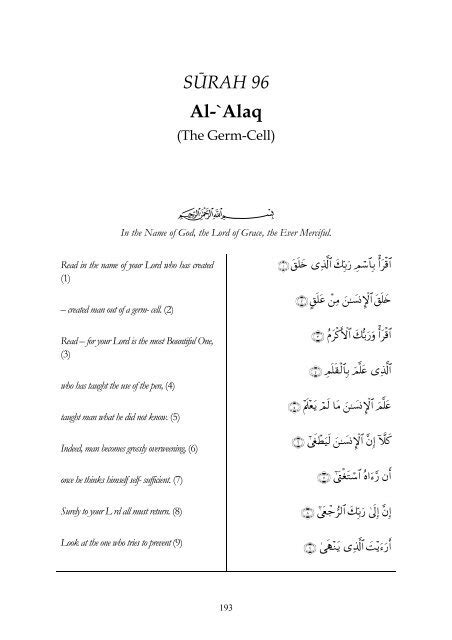 SŪRAH 96
Al-`Alaq
(The Germ-Cell)
بسم الله الرحمن الرحيم
In the Name of God, the Lord of Grace, the Ever Merciful.
Read in the name of your Lord who has created
(1)
– created man out of a germ- cell. (2)
Read – for your Lord is the most Bountiful One,
(3)
who has taught the use of the pen, (4)
taught man what he did not know. (5)
Indeed, man becomes grossly overweening, (6)
once he thinks himself self- sufficient. (7)
Surely to your L rd all must return. (8)
Look at the one who tries to prevent (9)
ٱقْرَأْ بِٱسْمِ رَبِّكَ ٱلَّذِى خَلَقَ
خَلَقَ ٱلْإِنسَـٰنَ مِنْ عَلَقٍ
ٱقْرَأْ وَرَبُّكَ ٱلْأَكْرَمُ
ٱلَّذِى عَلَّمَ بِٱلْقَلَمِ
عَلَّمَ ٱلْإِنسَـٰنَ مَا لَمْ يَعْلَمْ
كَلَّآ إِنَّ ٱلْإِنسَـٰنَ لَيَطْغَىٰٓ
أَن رَّءَاهُ ٱسْتَغْنَىٰٓ
إِنَّ إِلَىٰ رَبِّكَ ٱلرُّجْعَىٰٓ
أَرَءَيْتَ ٱلَّذِى يَنْهَىٰ
193